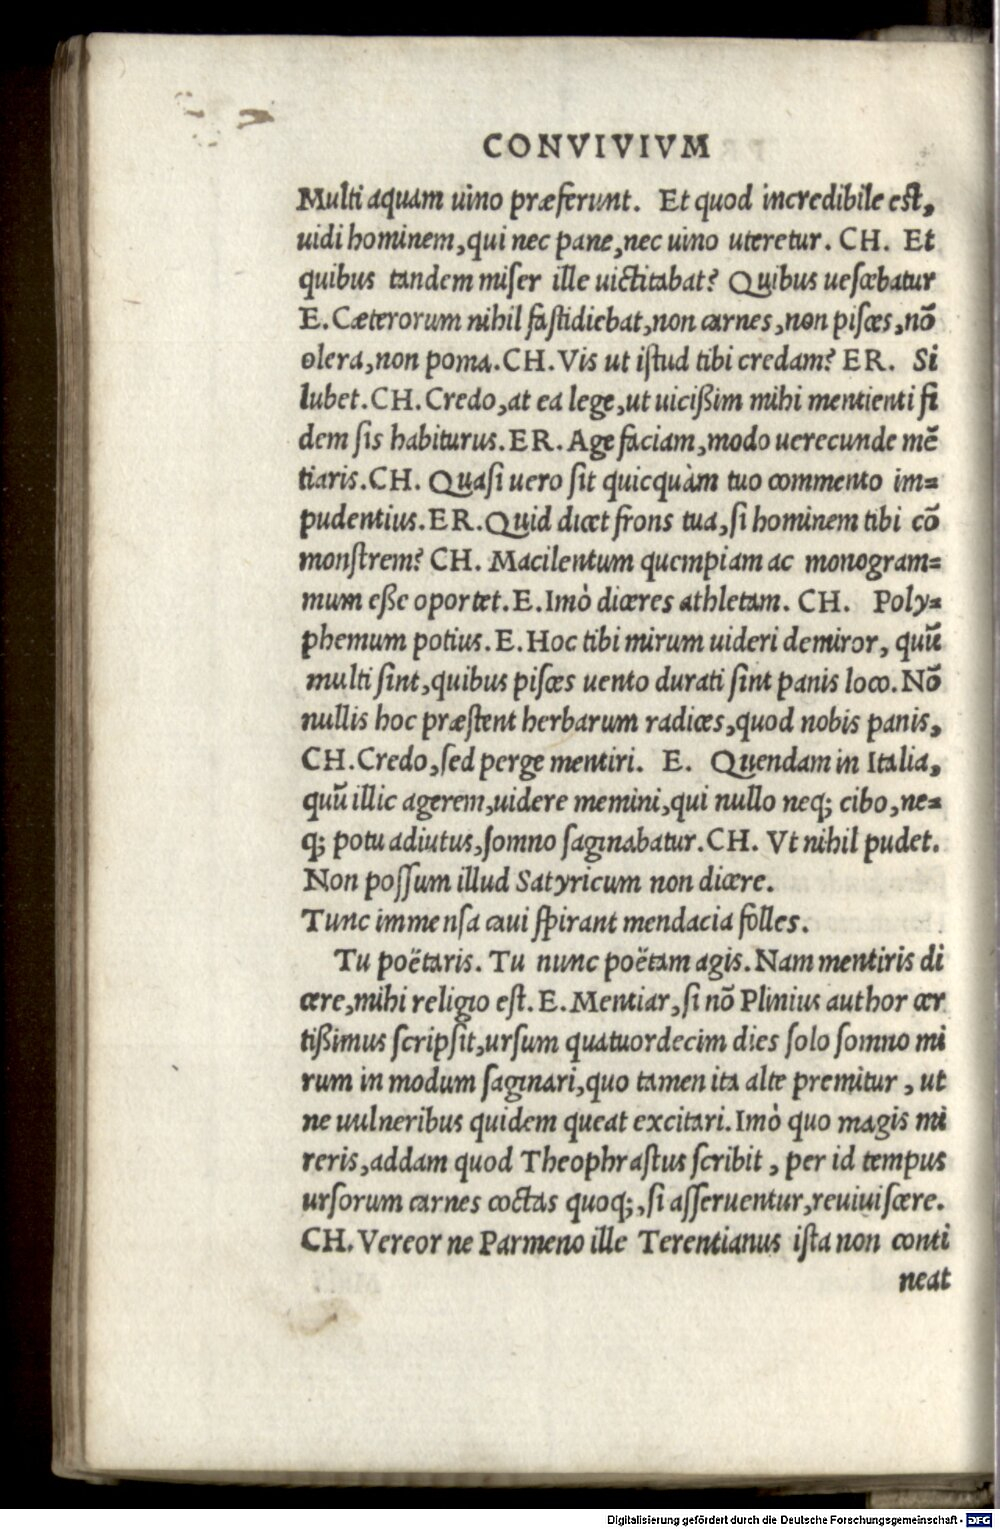 CONVIVIVM
Multi aquam uino præferunt. Et quod incredibile est,
uidi hominem, qui nec pane, nec uino uteretur. CH. Et
quibus tandem miser ille uictitabat? Quibus uescebatur
E. Cæterorum nihil fastidiebat, non carnes, non pisces, nō
olera, non poma. CH. Vis ut istud tibi credam? ER. Si
lubet. CH. Credo, at ea lege, ut uicißim mihi mentienti fi
dem sis habiturus. ER. Age faciam, modo uerecunde mē
tiaris. CH. Quasi uero sit quicquàm tuo commento im=
pudentius. ER. Quid dicet frons tua, si hominem tibi cō
monstrem? CH. Macilentum quempiam ac monogram=
mum eße oportet. E. Imò diceres athletam. CH. Poly=
phemum potius. E. Hoc tibi mirum uideri demiror, quū
multi sint, quibus pisces uento durati sint panis loco. Nō
nullis hoc præstent herbarum radices, quod nobis panis,
CH. Credo, sed perge mentiri. E. Quendam in Italia,
quū illic agerem, uidere memini, qui nullo neq; cibo, ne=
q; potu adiutus, somno saginabatur. CH. Vt nihil pudet.
Non possum illud Satyricum non dicere.
Tunc immensa caui spirant mendacia folles.
Tu poëtaris. Tu nunc poëtam agis. Nam mentiris di
cere, mihi religio est. E. Mentiar, si nō Plinius author cer
tißimus scripsit, ursum quatuordecim dies solo somno mi
rum in modum saginari, quo tamen ita alte premitur, ut
ne uulneribus quidem queat excitari. Imò quo magis mi
reris, addam quod Theophrastus scribit, per id tempus
ursorum carnes coctas quoq;, si asseruentur, reuiuiscere.
CH. Vereor ne Parmeno ille Terentianus ista non conti
neat
Digitalisierung gefördert durch die Deutsche Forschungsgemeinschaft - DFG